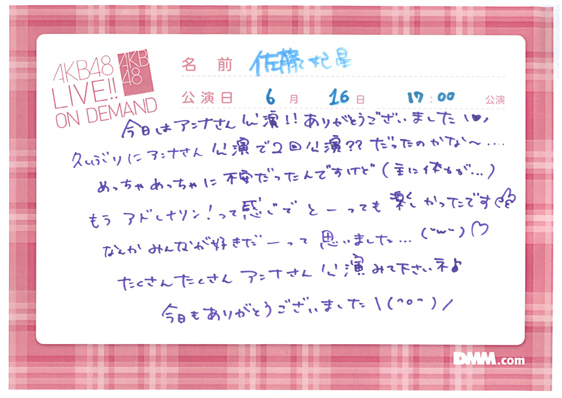 AKB48
LIVE!!
ON DEMAND
AKB
48
名 前 佐藤妃星
公演日 6 月 16 日 17:00 公演
今日はアンナさん公演!! ありがとうございました
久しぶりにアンナさん 公演で2回公演?? だったのかな〜...
めっちゃめっちゃに 不安だったんですけど (主に体力が...)
もう アドレナリン! って感じで と ー っても 楽しかったです
なんか みんなが好きだ ー って 思いました... (˘ω˘)♡
たくさんたくさん アンナさん 公演みて下さいネ♪
今日もありがとうございました \(^o^)/
DMM.com